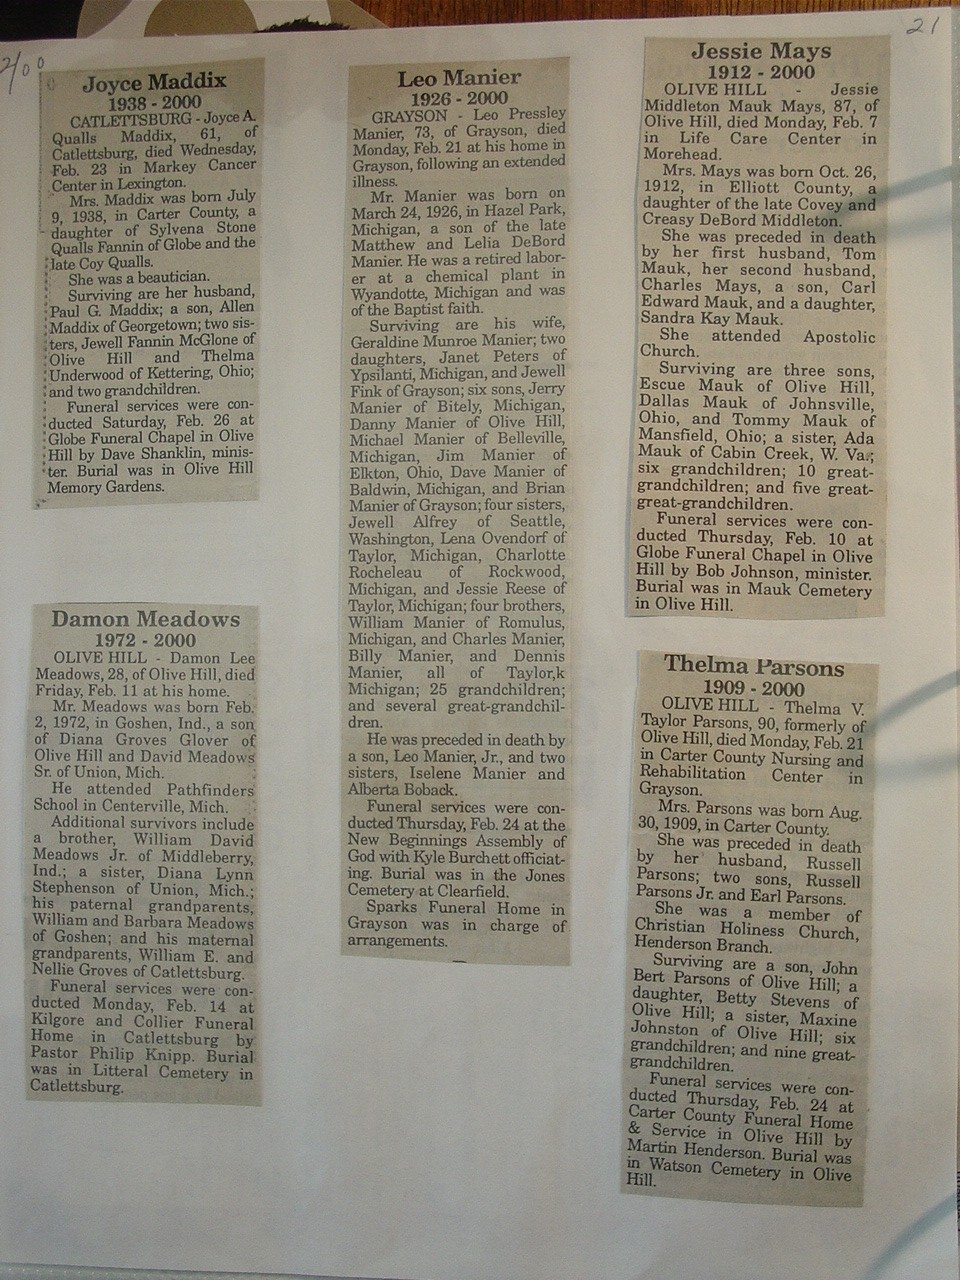 2/00
21
Joyce Maddix
1938 - 2000
CATLETTSBURG - Joyce A.
Qualls Maddix, 61, of
Catlettsburg, died Wednesday,
Feb. 23 in Markey Cancer
Center in Lexington.
Mrs. Maddix was born July
9, 1938, in Carter County, a
daughter of Sylvena Stone
Qualls Fannin of Globe and the
late Coy Qualls.
She was a beautician.
Surviving are her husband,
Paul G. Maddix; a son, Allen
Maddix of Georgetown; two sis-
ters, Jewell Fannin McGlone of
Olive Hill and Thelma
Underwood of Kettering, Ohio;
and two grandchildren.
Funeral services were con-
ducted Saturday, Feb. 26 at
Globe Funeral Chapel in Olive
Hill by Dave Shanklin, minis-
ter. Burial was in Olive Hill
Memory Gardens.
Damon Meadows
1972 - 2000
OLIVE HILL - Damon Lee
Meadows, 28, of Olive Hill, died
Friday, Feb. 11 at his home.
Mr. Meadows was born Feb.
2, 1972, in Goshen, Ind., a son
of Diana Groves Glover of
Olive Hill and David Meadows
Sr. of Union, Mich.
He attended Pathfinders
School in Centerville, Mich.
Additional survivors include
a brother, William David
Meadows Jr. of Middleberry,
Ind.; a sister, Diana Lynn
Stephenson of Union, Mich.;
his paternal grandparents,
William and Barbara Meadows
of Goshen; and his maternal
grandparents, William E. and
Nellie Groves of Catlettsburg.
Funeral services were con-
ducted Monday, Feb. 14 at
Kilgore and Collier Funeral
Home in Catlettsburg by
Pastor Philip Knipp. Burial
was in Litteral Cemetery in
Catlettsburg.
Leo Manier
1926 - 2000
GRAYSON - Leo Pressley
Manier, 73, of Grayson, died
Monday, Feb. 21 at his home in
Grayson, following an extended
illness.
Mr. Manier was born on
March 24, 1926, in Hazel Park,
Michigan, a son of the late
Matthew and Lelia DeBord
Manier. He was a retired labor-
er at a chemical plant in
Wyandotte, Michigan and was
of the Baptist faith.
Surviving are his wife,
Geraldine Munroe Manier; two
daughters, Janet Peters of
Ypsilanti, Michigan, and Jewell
Fink of Grayson; six sons, Jerry
Manier of Bitely, Michigan,
Danny Manier of Olive Hill,
Michael Manier of Belleville,
Michigan, Jim Manier of
Elkton, Ohio, Dave Manier of
Baldwin, Michigan, and Brian
Manier of Grayson; four sisters,
Jewell Alfrey of Seattle,
Washington, Lena Ovendorf of
Taylor, Michigan, Charlotte
Rocheleau of Rockwood,
Michigan, and Jessie Reese of
Taylor, Michigan; four brothers,
William Manier of Romulus,
Michigan, and Charles Manier,
Billy Manier, and Dennis
Manier, all of Taylor,k
Michigan; 25 grandchildren;
and several great-grandchil-
dren.
He was preceded in death by
a son, Leo Manier, Jr., and two
sisters, Iselene Manier and
Alberta Boback.
Funeral services were con-
ducted Thursday, Feb. 24 at the
New Beginnings Assembly of
God with Kyle Burchett officiat-
ing. Burial was in the Jones
Cemetery at Clearfield.
Sparks Funeral Home in
Grayson was in charge of
arrangements.
Jessie Mays
1912 - 2000
OLIVE HILL - Jessie
Middleton Mauk Mays, 87, of
Olive Hill, died Monday, Feb. 7
in Life Care Center in
Morehead.
Mrs. Mays was born Oct. 26,
1912, in Elliott County, a
daughter of the late Covey and
Creasy DeBord Middleton.
She was preceded in death
by her first husband, Tom
Mauk, her second husband,
Charles Mays, a son, Carl
Edward Mauk, and a daughter,
Sandra Kay Mauk.
She attended Apostolic
Church.
Surviving are three sons,
Escue Mauk of Olive Hill,
Dallas Mauk of Johnsville,
Ohio, and Tommy Mauk of
Mansfield, Ohio; a sister, Ada
Mauk of Cabin Creek, W. Va.;
six grandchildren; 10 great-
grandchildren; and five great-
great-grandchildren.
Funeral services were con-
ducted Thursday, Feb. 10 at
Globe Funeral Chapel in Olive
Hill by Bob Johnson, minister.
Burial was in Mauk Cemetery
in Olive Hill.
Thelma Parsons
1909 - 2000
OLIVE HILL - Thelma V.
Taylor Parsons, 90, formerly of
Olive Hill, died Monday, Feb. 21
in Carter County Nursing and
Rehabilitation Center in
Grayson.
Mrs. Parsons was born Aug.
30, 1909, in Carter County.
She was preceded in death
by her husband, Russell
Parsons; two sons, Russell
Parsons Jr. and Earl Parsons.
She was a member of
Christian Holiness Church,
Henderson Branch.
Surviving are a son, John
Bert Parsons of Olive Hill; a
daughter, Betty Stevens of
Olive Hill; a sister, Maxine
Johnston of Olive Hill; six
grandchildren; and nine great-
grandchildren.
Funeral services were con-
ducted Thursday, Feb. 24 at
Carter County Funeral Home
& Service in Olive Hill by
Martin Henderson. Burial was
in Watson Cemetery in Olive
Hill.